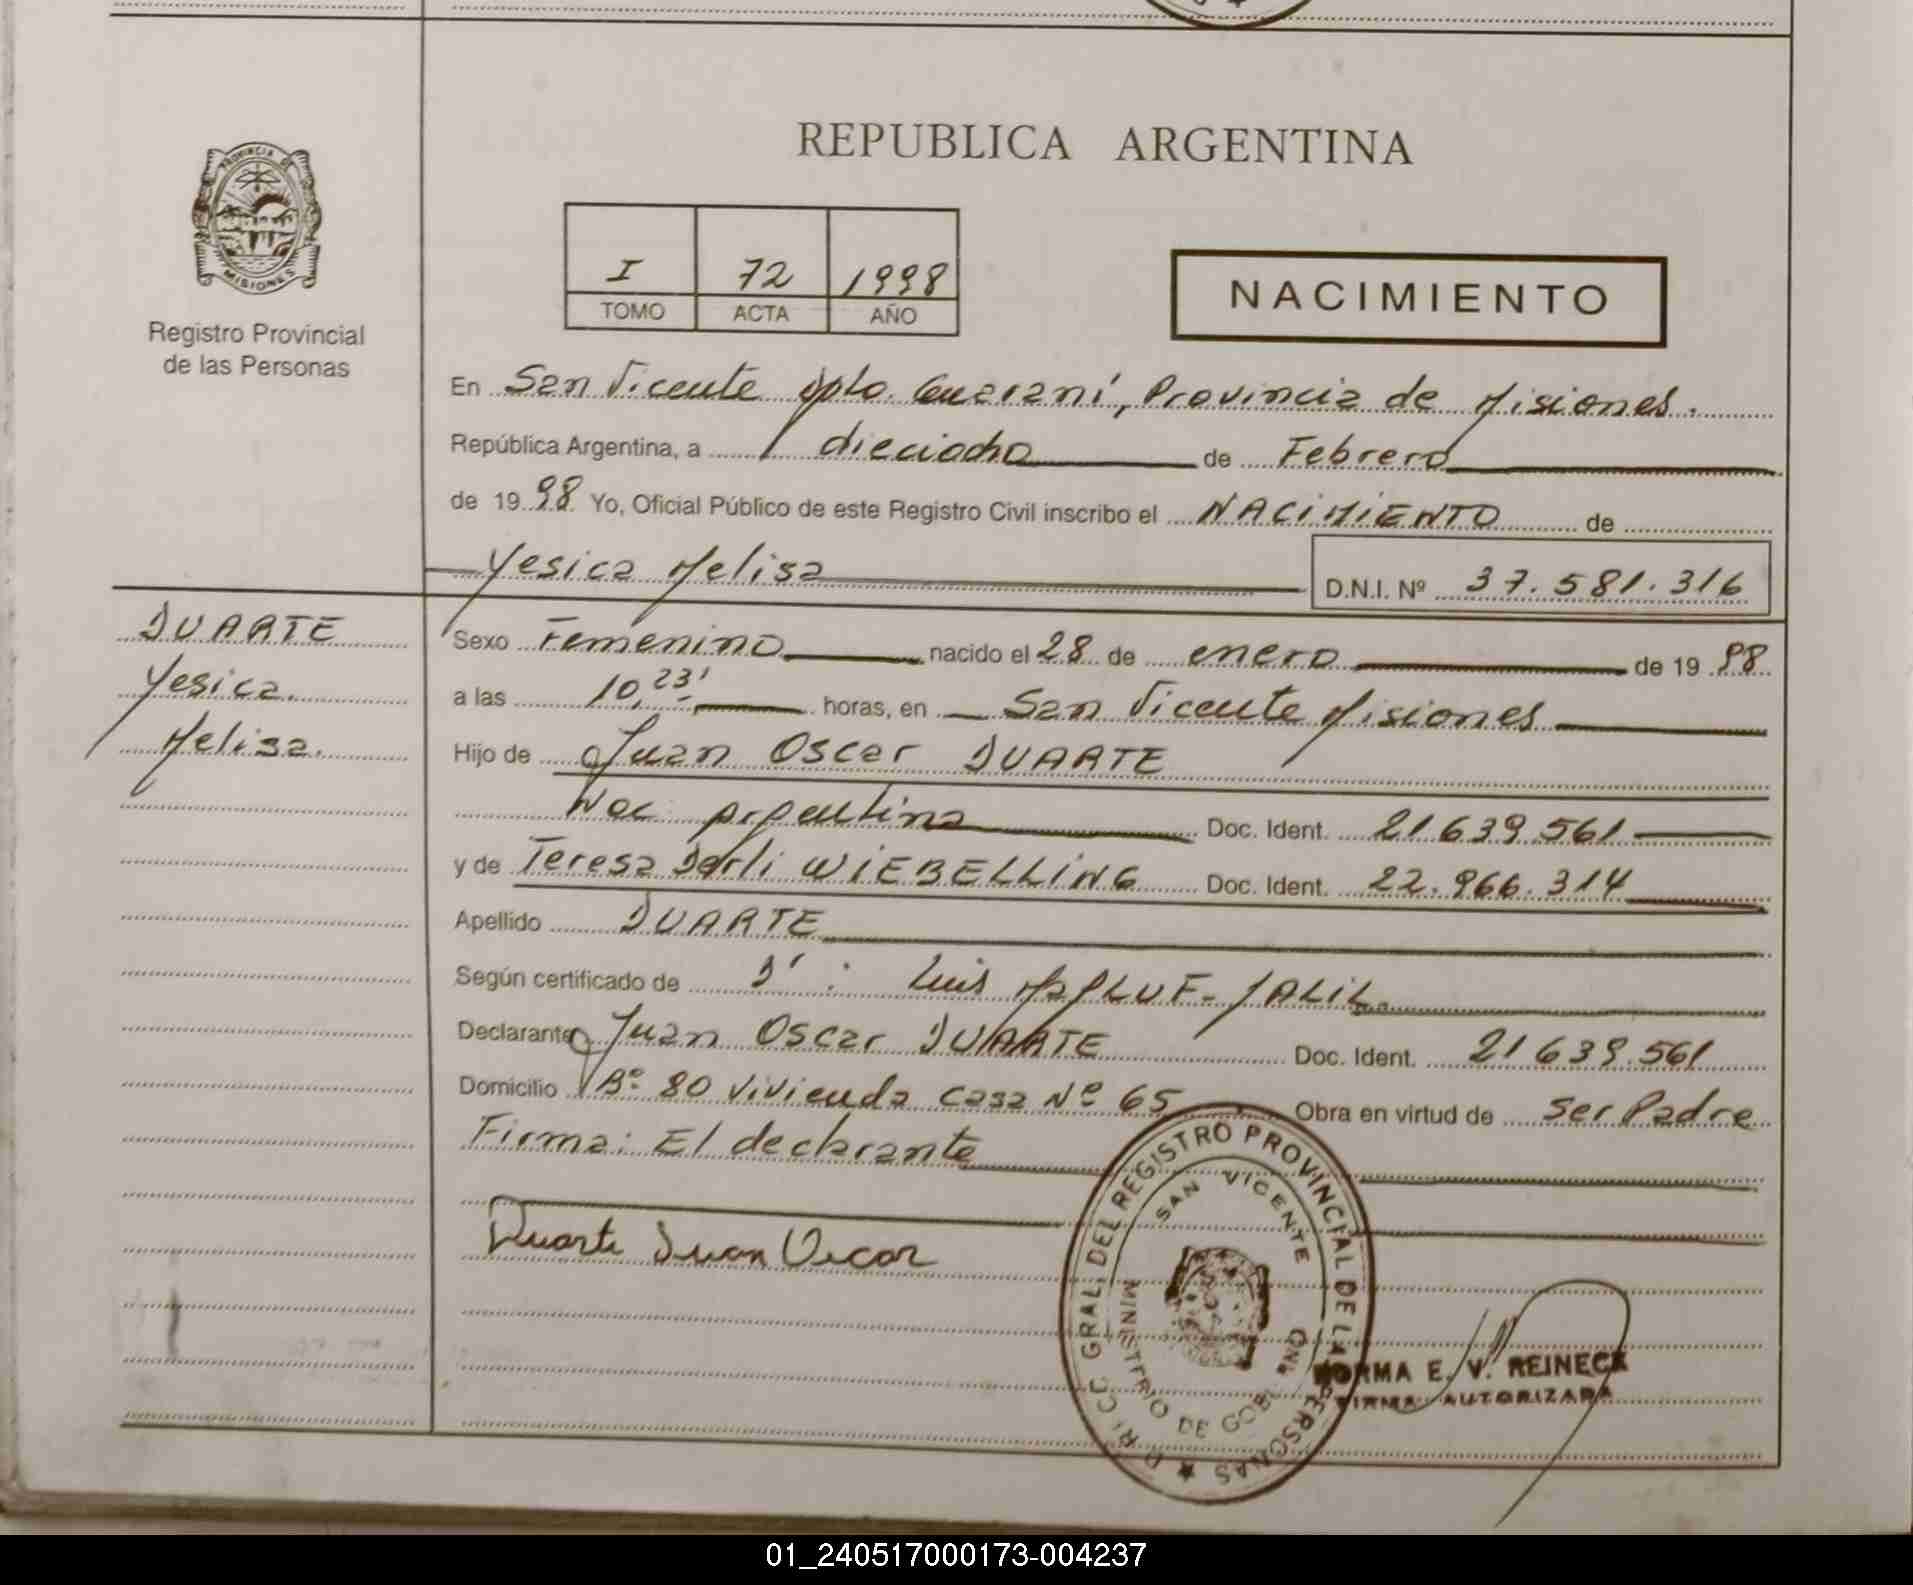 REPUBLICA ARGENTINA
PROVINCIA DE
MISIONES
Registro Provincial
de las Personas
I 72 1998
TOMO ACTA AÑO
NACIMIENTO
En San Vicente Dpto. Guaraní, Provincia de Misiones.
República Argentina, a dieciocho de Febrero
de 1998 Yo, Oficial Público de este Registro Civil inscribo el NACIMIENTO de
Yesica Melisa D.N.I. Nº 37.581.316
DUARTE
Yesica
Melisa.
Sexo Femenino nacido el 28 de enero de 1998
a las 10,23' horas, en San Vicente Misiones
Hijo de Juan Oscar DUARTE
Nac. Argentina Doc. Ident. 21.639.561
y de Teresa Darli WIEBELLING Doc. Ident. 22.966.314
Apellido DUARTE
Según certificado de Luis JALIL.
Declarante Juan Oscar DUARTE Doc. Ident. 21.639.561
Domicilio Bº 80 Vivienda Casa Nº 65 Obra en virtud de ser Padre
Firma: El declarante
Duarte Juan Oscar
GRAL. DEL REGISTRO PROVINCIAL DE LAS PERSONAS
SAN VICENTE
MINISTERIO DE
NORMA E. V. REINECK
FIRMA AUTORIZADA
01_240517000173-004237